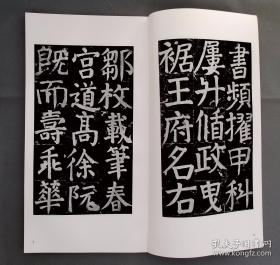 書頻擢甲科
屢升循政曳
裾王府名右
鄒枚載筆春
宮道髙徐阮
既而壽乖華